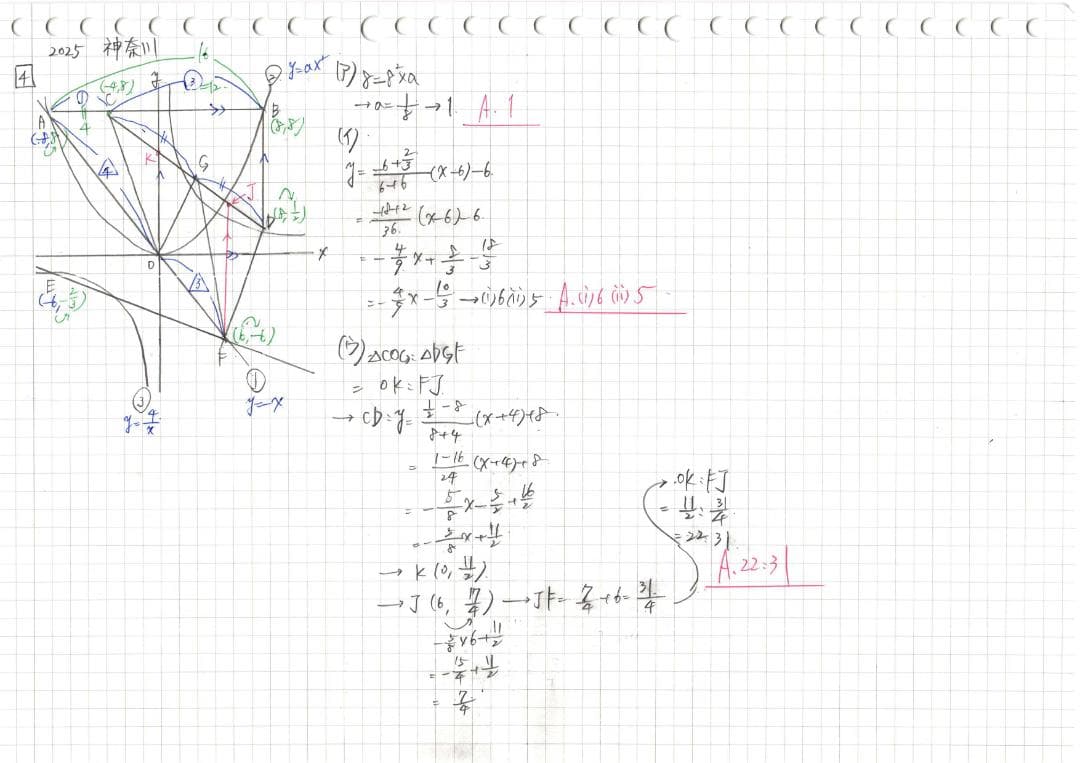 2025 神奈川
4
16
② y=ax²
① (-4,8) ③=12
y
A C B
4
(-8,8) (8,8)
K G
④ J
D (8,1/2)
O x
③
E
(-6,-2/3) (6,-6)
F
③ ①
y=4/x y=-x
(ア) 8=8²×a
→a=1/8→1. A.1
(イ)
y=(-6+2/3)/(6+6)(x-6)-6.
=(-18+2)/36(x-6)-6.
=-4/9x+8/3-18/3
=-4/9x-10/3→(i)6(ii)5. A.(i)6(ii)5
(ウ)△COG:△DGF
= OK:FJ
→CD:y=(1/2-8)/(8+4)(x+4)+8.
=(1-16)/24(x+4)+8
=-5/8x-5/2+16/2
=-5/8x+11/2
→K(0,11/2).
→J(6, 7/4)→JF=7/4+6=31/4
-5/8×6+11/2
=-15/4+11/2
=7/4
OK:FJ
=11/2:31/4
=22:31
A.22:31